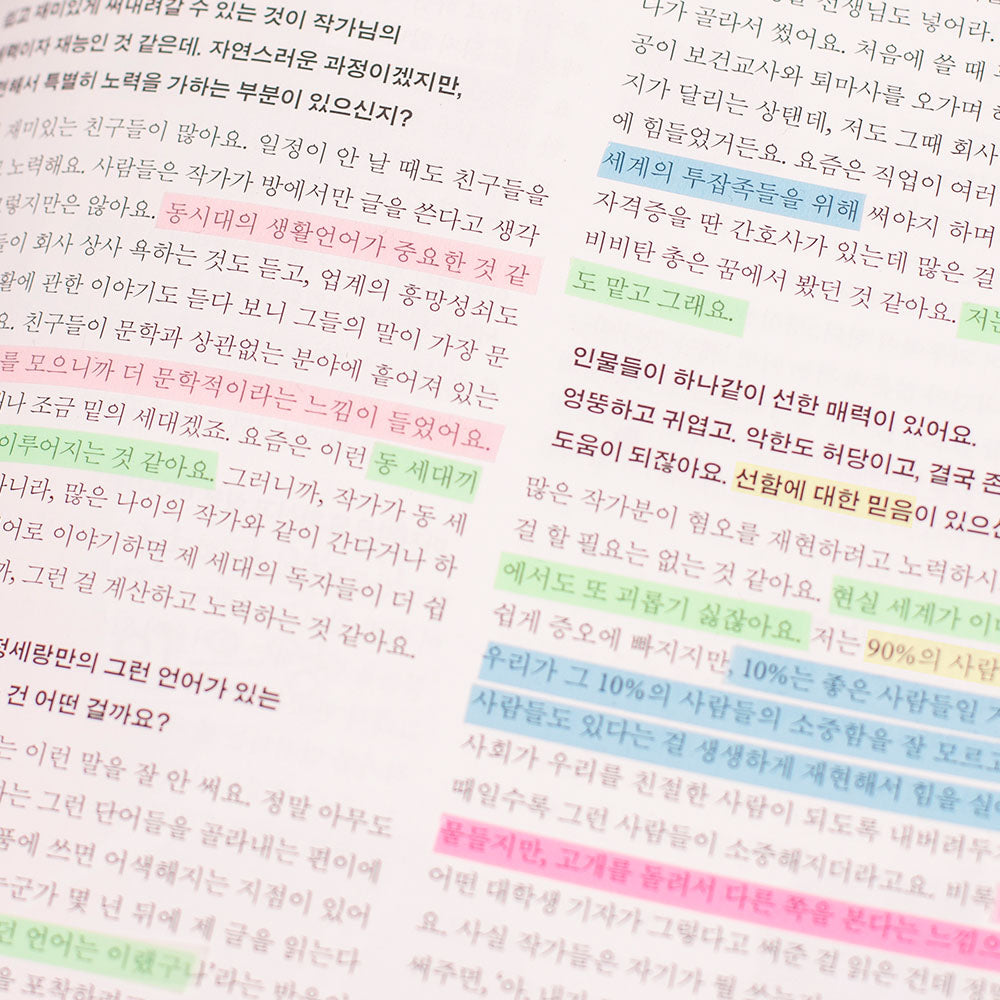 쉽고 재미있게 써내려갈 수 있는 것이 작가님의
매력이자 재능인 것 같은데. 자연스러운 과정이겠지만,
특별히 노력을 가하는 부분이 있으신지?
재미있는 친구들이 많아요. 일정이 안 날 때도 친구들을
노력해요. 사람들은 작가가 방에서만 글을 쓴다고 생각
그렇지만은 않아요. 동시대의 생활언어가 중요한 것 같
회사 상사 욕하는 것도 듣고, 업계의 흥망성쇠도
관한 이야기도 듣다 보니 그들의 말이 가장 문
친구들이 문학과 상관없는 분야에 흩어져 있는
를 모으니까 더 문학적이라는 느낌이 들었어요.
조금 밑의 세대겠죠. 요즘은 이런 동 세대끼
이루어지는 것 같아요. 그러니까, 작가가 동 세
아니라, 많은 나이의 작가와 같이 간다거나 하
이야기하면 제 세대의 독자들이 더 쉽
그런 걸 계산하고 노력하는 것 같아요.
정세랑만의 그런 언어가 있는
건 어떤 걸까요?
는 이런 말을 잘 안 써요. 정말 아무도
그런 단어들을 골라내는 편이에
쓰면 어색해지는 지점이 있어
누군가 몇 년 뒤에 제 글을 읽는다
언어는 이랬구나’라는 반응이
선생님도 넣어라.
나가 골라서 썼어요. 처음에 쓸 때
공이 보건교사와 퇴마사를 오가며
지가 달리는 상탠데, 저도 그때 회사
에 힘들었거든요. 요즘은 직업이 여러
세계의 투잡족들을 위해 써야지 하며
자격증을 딴 간호사가 있는데 많은 걸
비비탄 총은 꿈에서 봤던 것 같아요. 저는
도 맡고 그래요.
인물들이 하나같이 선한 매력이 있어요.
엉뚱하고 귀엽고. 악한도 허당이고, 결국
도움이 되잖아요. 선함에 대한 믿음이
많은 작가분이 혐오를 재현하려고 노력하시
걸 할 필요는 없는 것 같아요. 현실 세계가
에서도 또 괴롭기 싫잖아요. 저는 90%의
쉽게 증오에 빠지지만, 10%는 좋은 사람들일
우리가 그 10%의 사람들의 소중함을 잘 모르고
사람들도 있다는 걸 생생하게 재현해서 힘을
사회가 우리를 친절한 사람이 되도록 내버려두
때일수록 그런 사람들이 소중해지더라고요. 비록
물들지만, 고개를 돌려서 다른 쪽을 본다는
어떤 대학생 기자가 그렇다고 써준 걸 읽은 건데
요. 사실 작가들은 자기가 뭘
써주면, ‘아,